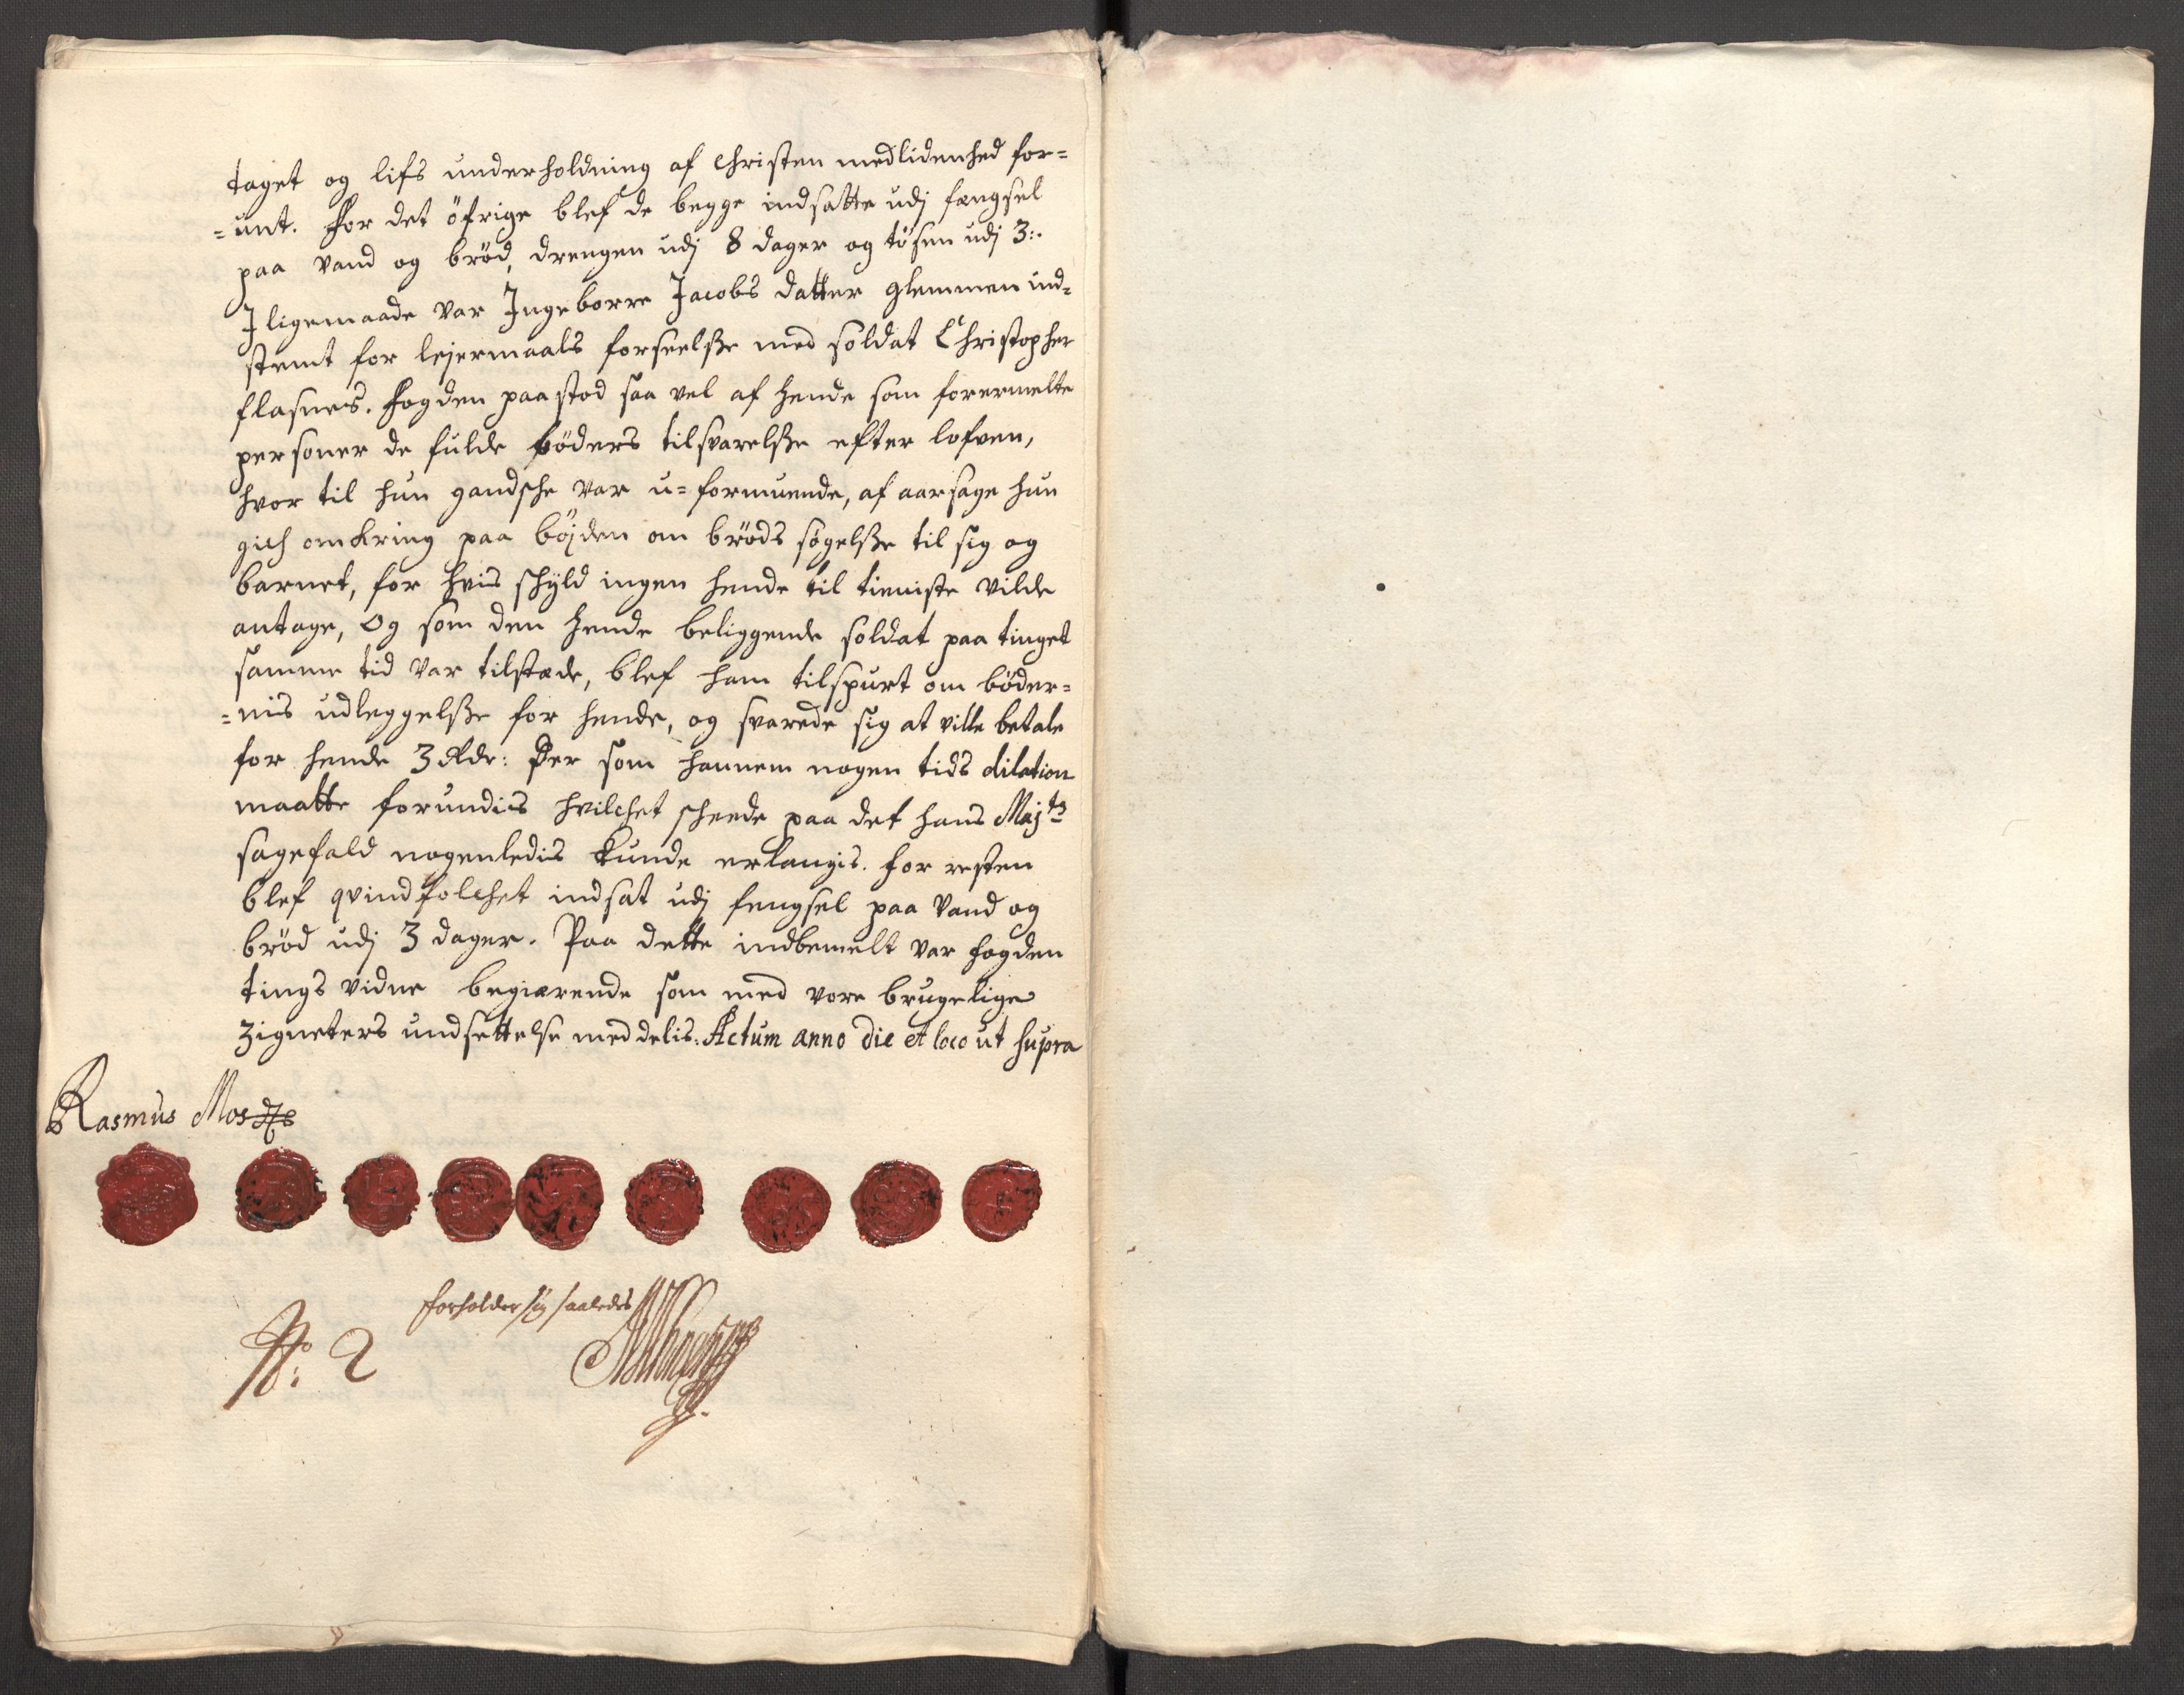 taget og lifs underholdning af christen medlidenhed for=
=unt. For det öfrige blef de begge indsatte udj fængsel
paa vand og bröd, drengen udj 8 dager og tösen udj 3:.
J ligemaade var Jngeborre Jacobs datter Glemmen ind=
stemt for lejermaals forseelsse med soldat Christopher
flasnes. Fogden paastod saa vel af hende som forermelte
personer de fulde böders tilsvarelsse efter lofven,
hvor til hun gandsche var u=formuende, af aarsage hun
gich omkring paa böjden om bröds sögelsse til sig og
barnet, for hvis schyld ingen hende til tieniste vilde
antage, og som den hende beliggende soldat paa tinget
samme tid var tilstæde, blef ham tilspurt om böder=
=nis udleggelsse for hende, og svarede sig at ville betale
for hende 3 Rdr: Der som hannem nogen tids dilation
maatte forundis hvilchet scheede paa det hans Maj:ts
sagefald nogenledis kunde erlangis. for resten
blef qvindfolchet indsat udj fengsel paa vand og
bröd udj 3 dager. Paa dette indbemelt var fogden
tings vidne begiærende som med vore brugelige
zigneters undsettelse meddelis. Actum anno die et loco ut supra
Rasmus Mos
forholder sig saaledes
No: 2